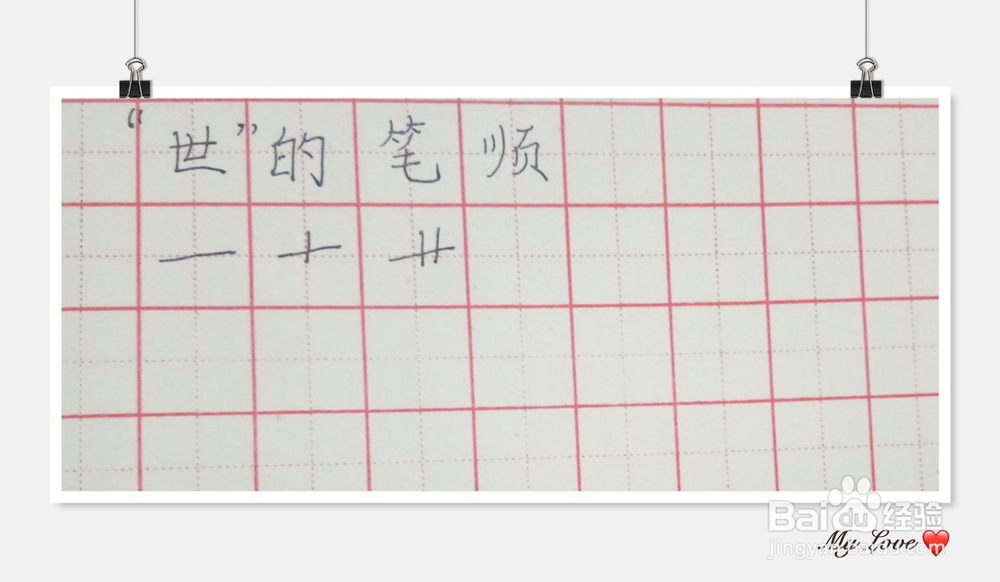 “世”的笔顺
一 十 卄
Baidu经验
jingyan.baidu.com
My Love